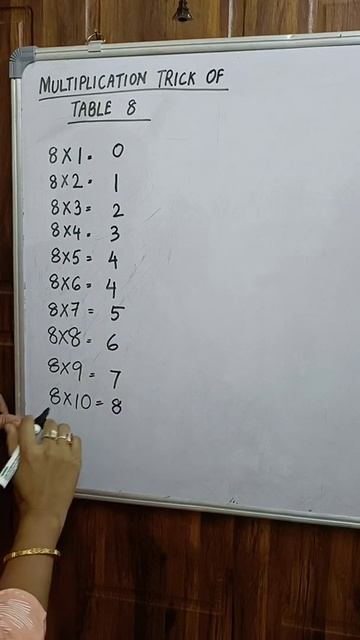 MULTIPLICATION TRICK OF
TABLE 8
8X1= 0
8X2= 1
8X3= 2
8X4= 3
8X5= 4
8X6= 4
8X7= 5
8X8= 6
8X9= 7
8X10= 8